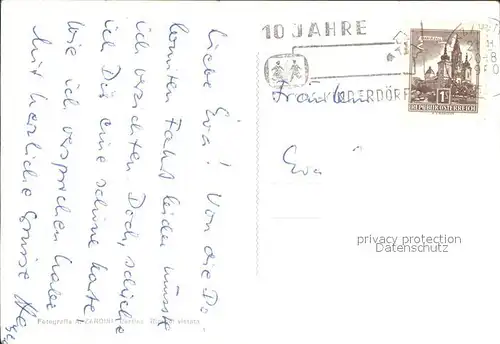 Liebe Eva! Von die Do
lomiten Fahrt leider musste
ich verzichten Doch, schicke
ich Dir eine schöne Karte
wie ich versprochen habe
Mit herzliche Grüsse
10 JAHRE
KINDERDÖRF
REPUBLIK ÖSTERREICH
Fräulein
Eva
privacy protection
Datenschutz
Fotografia